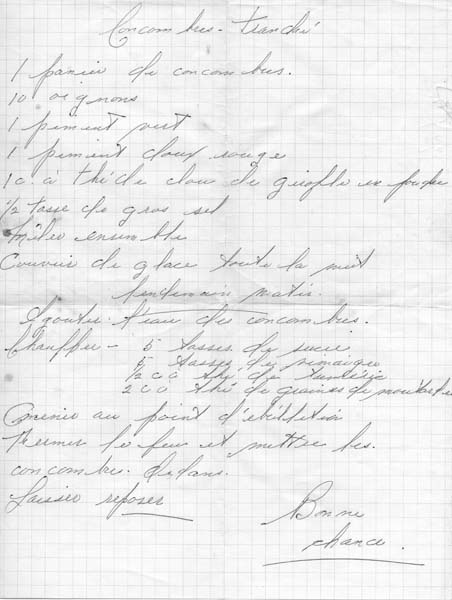 Concombres-tranché
1 panier de concombres.
10 oignons
1 piment vert
1 piment doux rouge
1 c. à thé de clou de girofle en poudre
1/2 tasse de gros sel
Mêler ensemble
Couvrir de glace toute la nuit
lendemain matin.
Égoutter l'eau des concombres.
Chauffer - 5 tasses de sucre
5 tasses de vinaigre
1/2 c à thé de turméric
2 c à thé de graines de moutarde
Amener au point d'ébullition
Fermer le feu et mettre les
concombres dedans.
Laisser reposer
Bonne
chance.